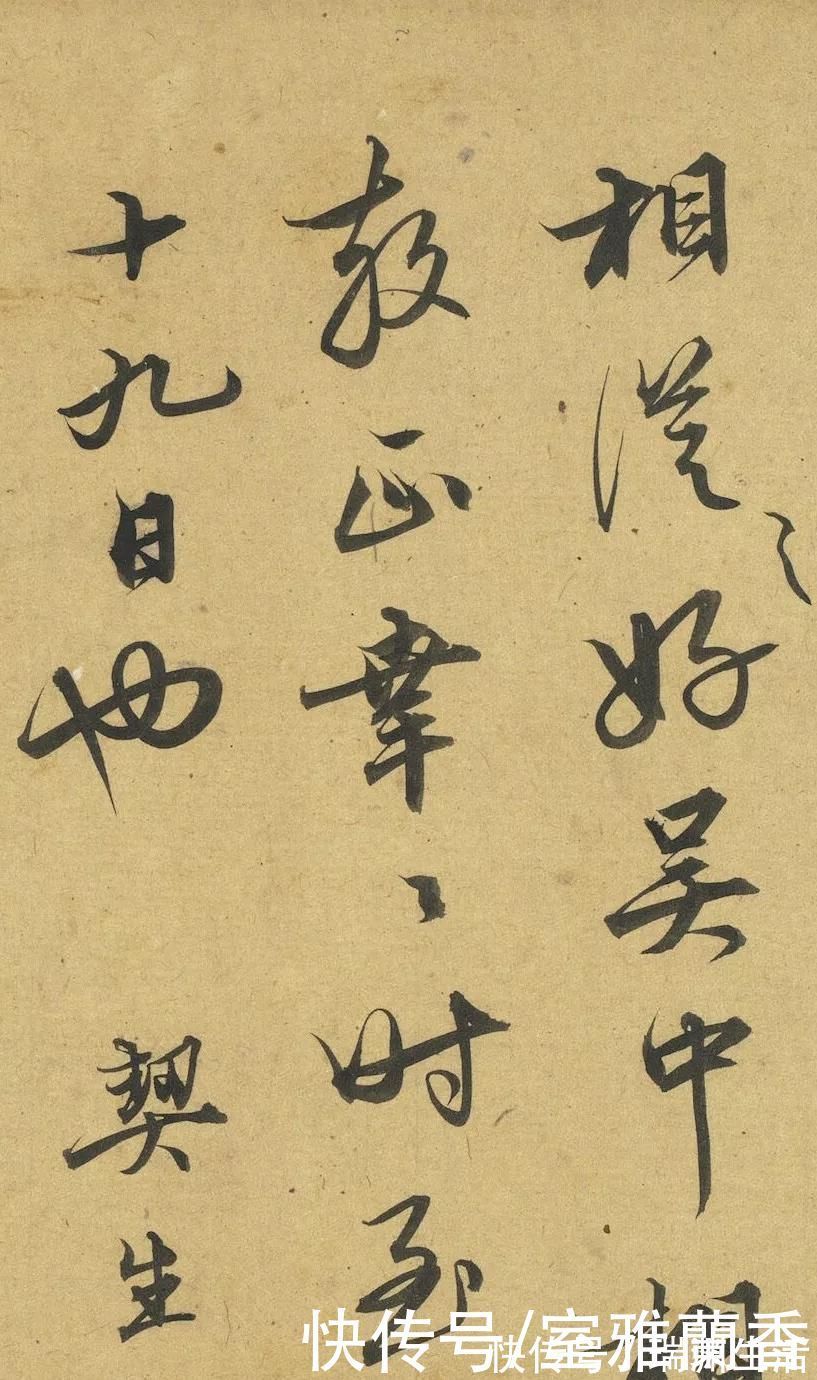 相從之好吴中相
教正幸〻時至
十九日也 契生
快传号/室雅蘭香